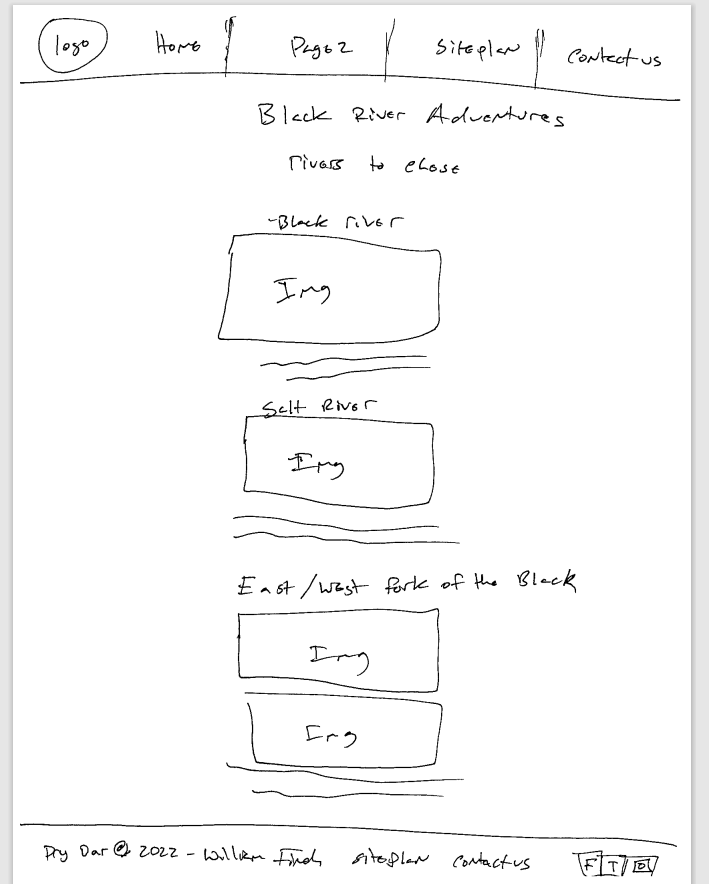 logo Home Page 2 siteplan Contact us
Black River Adventures
rivers to chose
-Black river
Img
Salt River
Img
East/west fork of the Black
Img
Img
2022 - William siteplan Contact us F T